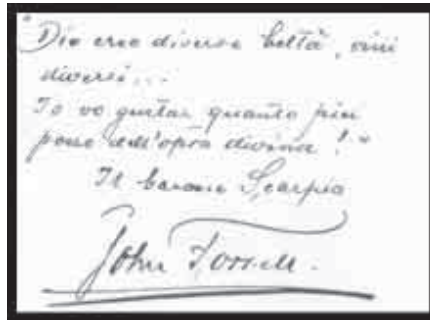 "Dio creò diverse beltà, vini
diversi...
Io vo gustar quanto più
posso dell'opra divina!"
Il barone Scarpia
John Forsell.